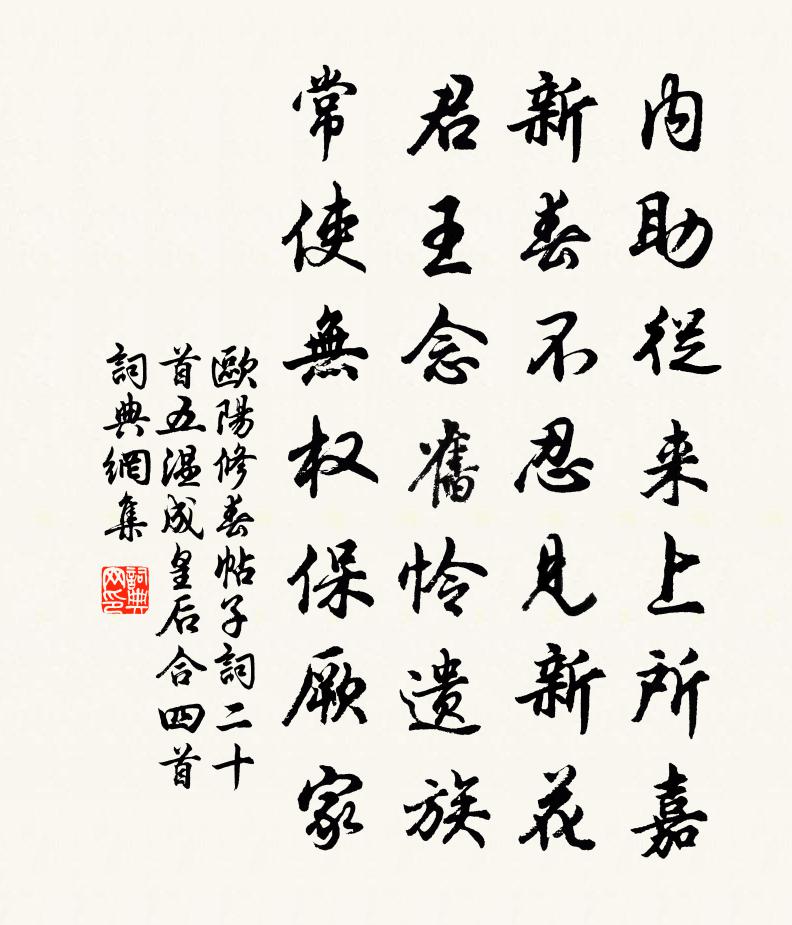 内助從来上所嘉
新春不忍見新花
君王念舊怜遺族
常使無权保厥家
歐陽修春帖子詞二十
首五溫成皇后合四首
詞典網集
詞典
网印